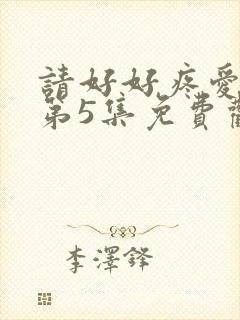 請好好疼愛
第5集免費
李澤鋒